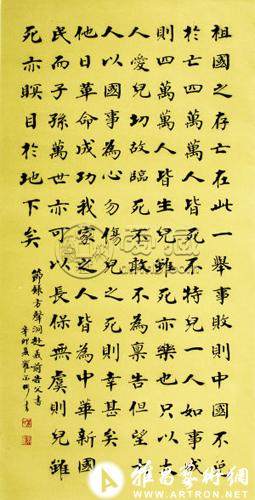 祖國之存亡在此一舉事敗則中國不免
於亡四萬萬人皆死不特兒一人如事成
則四萬萬人皆生兒雖死亦樂也只以大
人愛兒切故臨死不敢不為稟告但望大
人以國事為心勿傷兒之死則幸甚矣
他日革命成功我家之人皆為中華新國
民而子孫萬世亦可以長保無虞則兒雖
死亦瞑目於地下矣
節錄方聲洞赴義前告父書
辛卯夏
書
雅昌藝術網